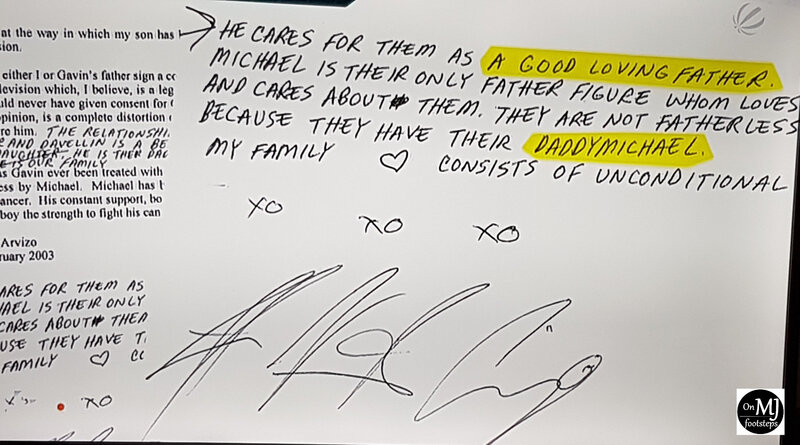 at the way in which my son has
sion.
either I or Gavin's father sign a co
levision which, I believe, is a leg
uld never have given consent for
opinion, is a complete distortion
re him. THE RELATIONSHI
AND DAVELLIN IS A BE
DAUGHTER. HE IS THER DAD
OUR FAMILY
as Gavin ever been treated with
ess by Michael. Michael has b
ancer. His constant support, bo
boy the strength to fight his can
Arvizo
ruary 2003
ARES FOR THEM AS
AEL IS THEIR ONLY
CARES ABOUT THEM
USE THEY HAVE T
FAMILY ♡ CO
XO
HE CARES FOR THEM AS A GOOD LOVING FATHER.
MICHAEL IS THEIR ONLY FATHER FIGURE WHOM LOVES
AND CARES ABOUT THEM. THEY ARE NOT FATHERLESS
BECAUSE THEY HAVE THEIR DADDYMICHAEL.
MY FAMILY ♡ CONSISTS OF UNCONDITIONAL
XO XO XO
On MJ
footsteps